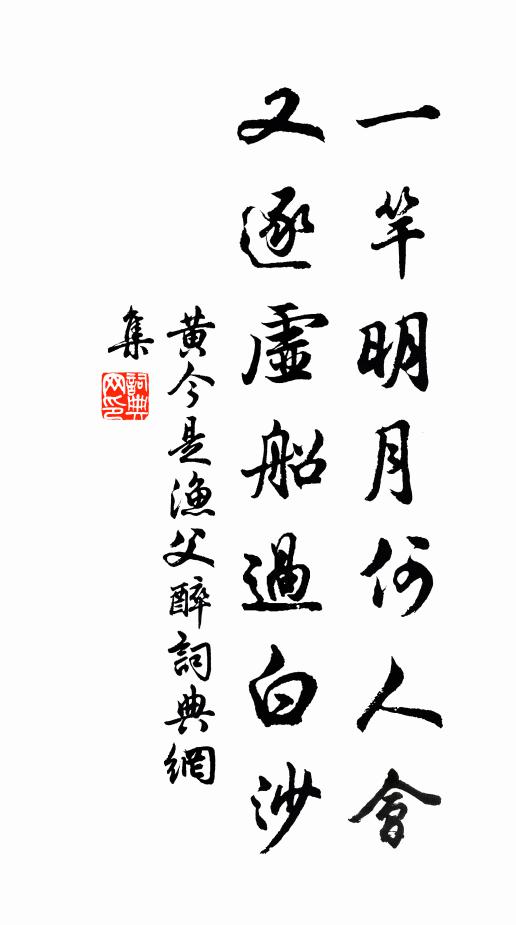 一竿明月何人會
又逐虛船過白沙
黄今是漁父醉詞典網
集
詞典
网印